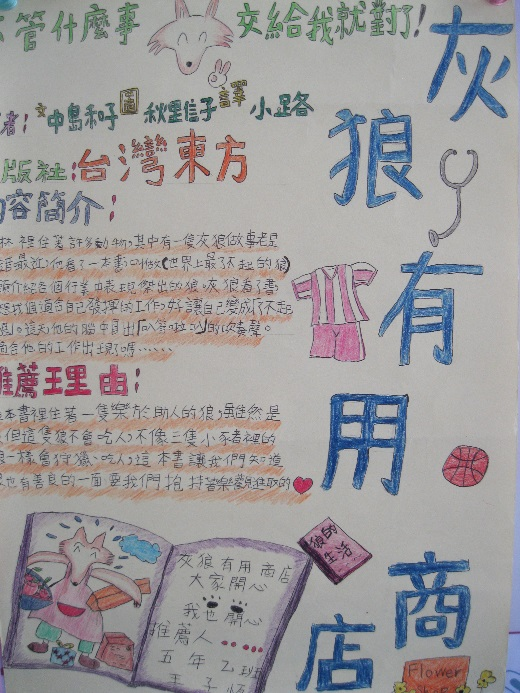 管什麼事 交給我就對了!
灰狼有用商店
者:文中島和子圖秋里信子譯小路
版社:台灣東方
容簡介:
林裡住著許多動物,其中有一隻灰狼做事老是
最近,他看了一本書叫做(世界上最了不起的狼)
介紹各個行業中表現傑出的狼。灰狼看了
想找個適合自己發揮的工作,好讓自己變成「了不起
狼」。這天,他的腦中冒出
適合他的工作出現了嗎......
推薦理由:
本書裡住著一隻樂於助人的狼,雖然是
但這隻狼不會吃人,不像三隻小豬裡的
一樣會狩獵、吃人,這本書讓我們知道
也有善良的一面要我們抱持著樂觀進取的
狼的生活
灰狼有用商店
大家開心
我也開心
推薦人
五年乙班
王子
Flower